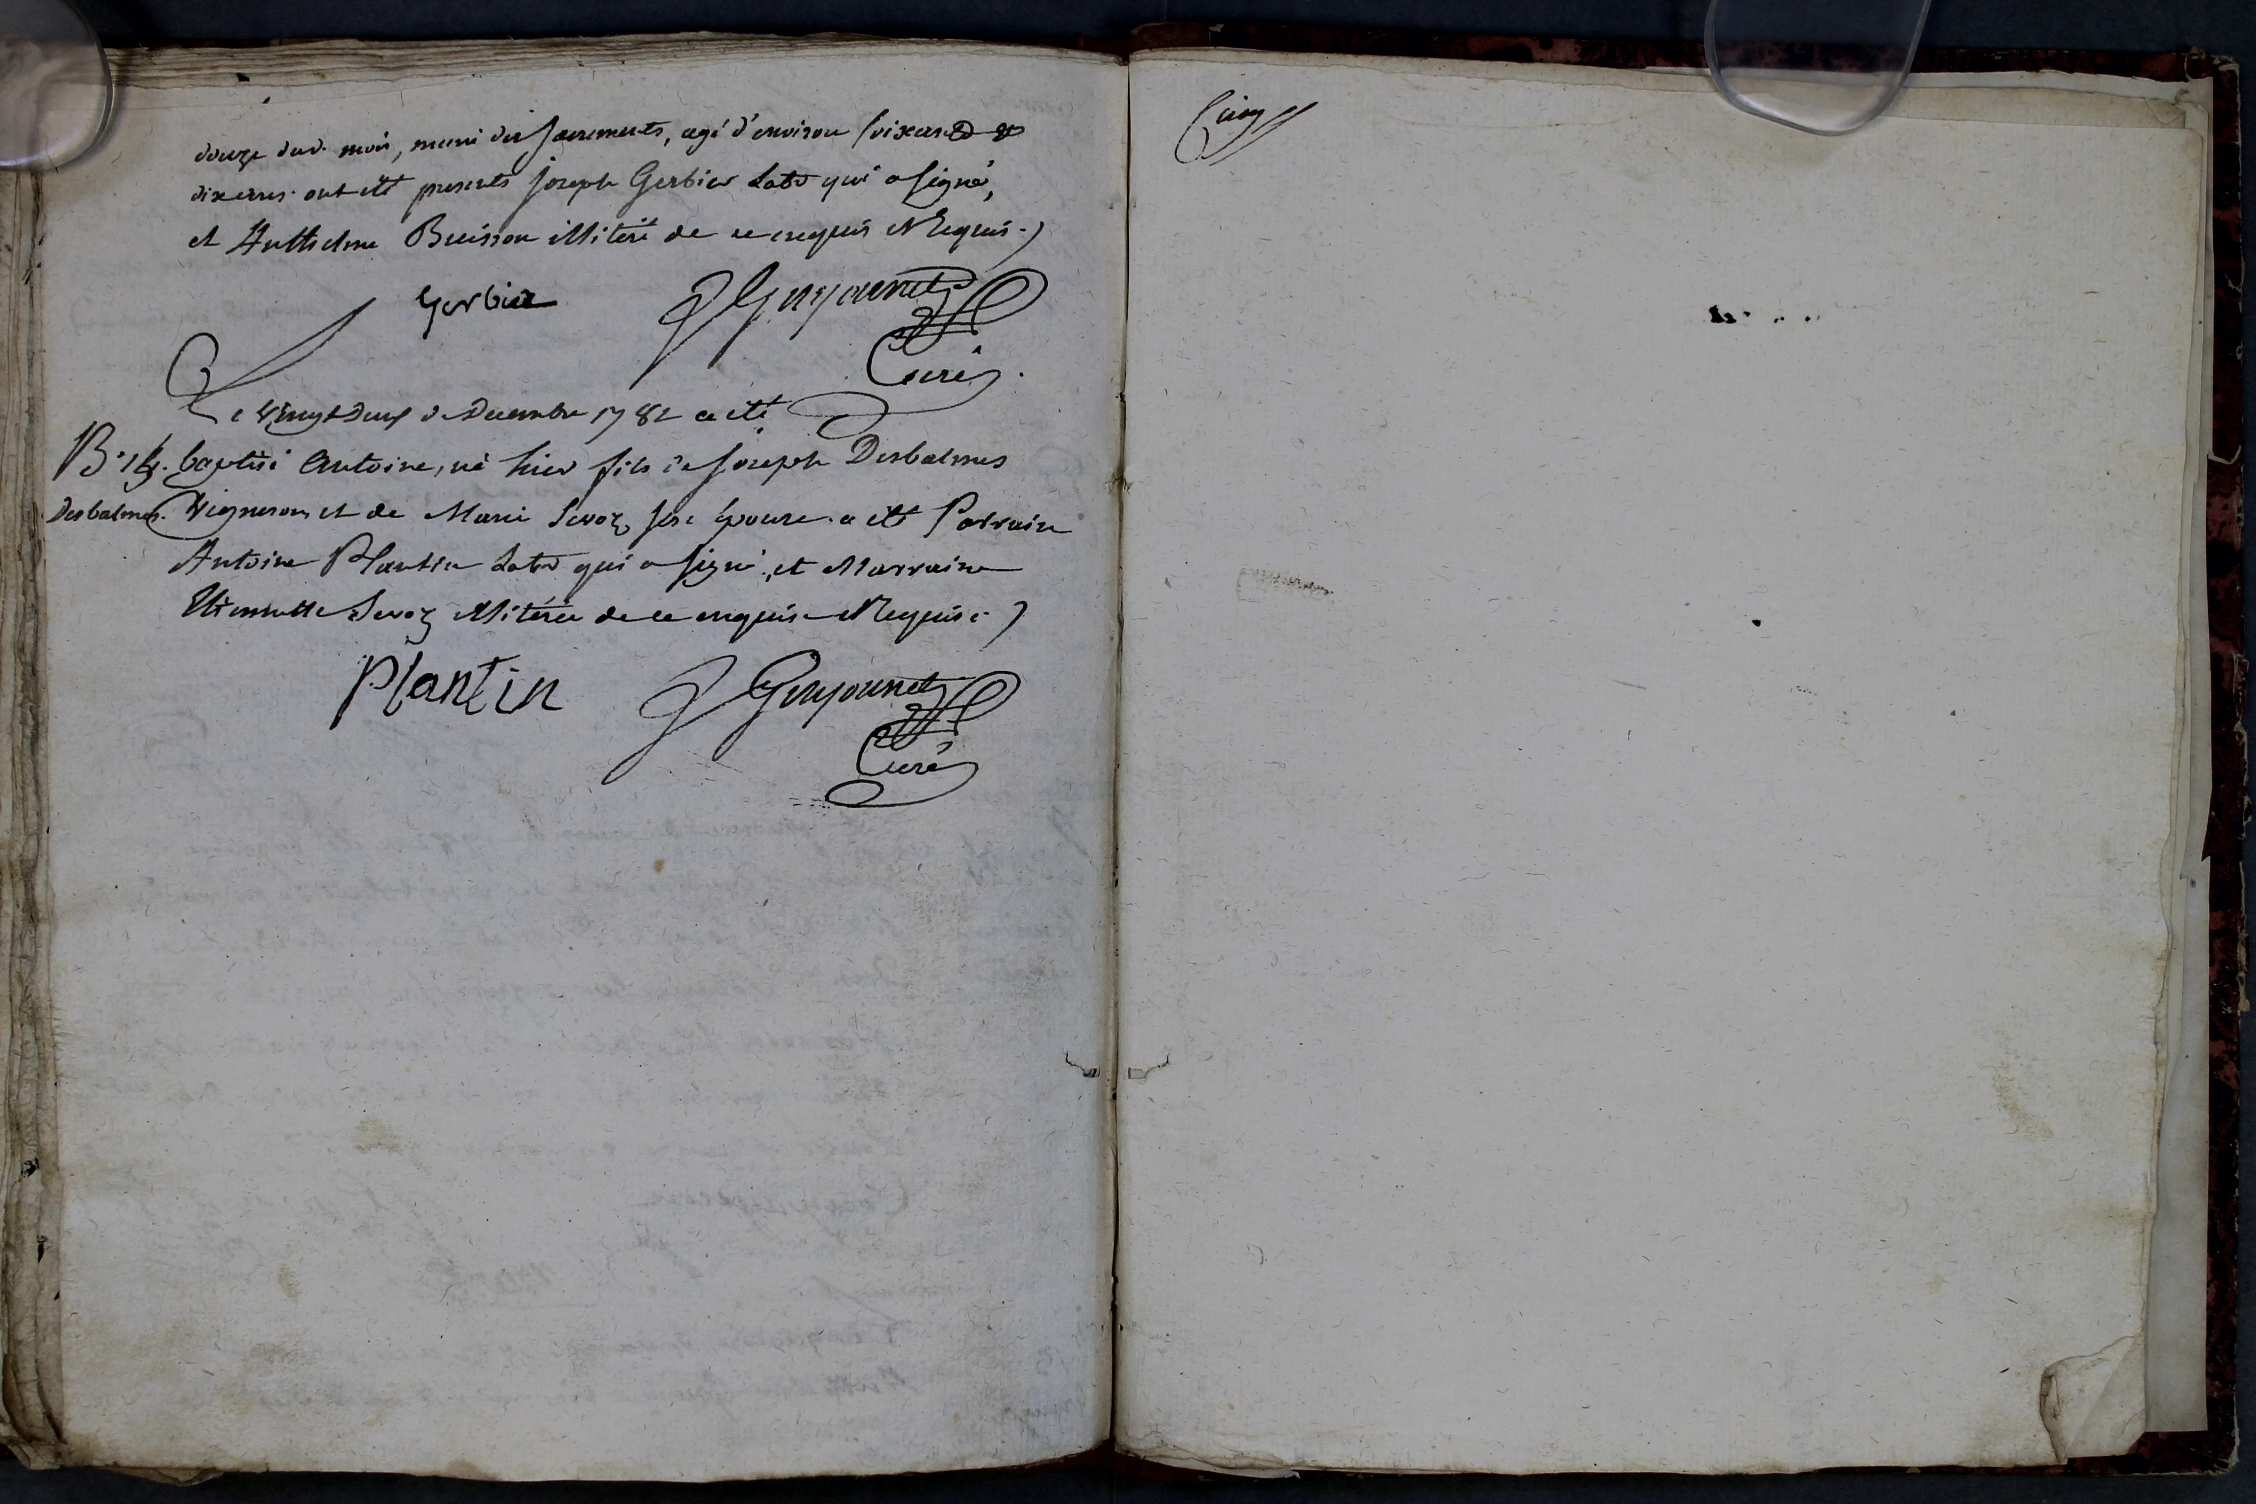 douze dud. mois, muni des sacrements, agé d'environ soixante &
dix ans. ont été presents joseph Gerbier Labr qui a signé,
et Anthelme Buisson illiteré de ce enquis et Requis.)
Gerbier Guyounet
Curé.
Le vingt Deux de Decembre 1782 a été
B. baptisé Antoine, né hier fils de joseph Desbalmes
Desbalmes. Vigneron et de Marie Sevoz son épouse. a été Parrain
Antoine Plantin Labr qui a signé, et Marraine
Etiennette Sevoz illiterée de ce enquise et Requise.)
Plantin Guyounet
Curé